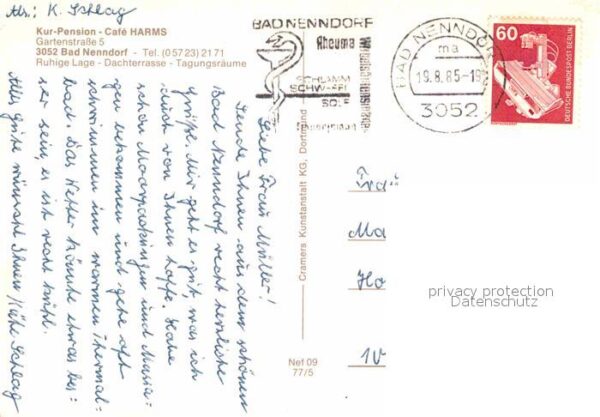 Abs.: K. Schlag
Kur-Pension - Café HARMS
Gartenstraße 5
3052 Bad Nenndorf - Tel. (0 57 23) 21 71
Ruhige Lage - Dachterrasse - Tagungsräume
BAD NENNDORF
Rheuma
SCHLAMM
SCHWEFEL
SOLE
BAD NENNDORF
ma
19.8.85-19
3052
60
DEUTSCHE BUNDESPOST BERLIN
Liebe Frau Müller!
Sende Ihnen aus dem schönen
Bad Nenndorf recht herzliche
Grüße. Mir geht es gut, was ich
auch von Ihnen hoffe. Habe
schon Moorpackungen und Massa-
gen bekommen und gehe oft
schwimmen im warmen Thermal-
bad. Das Wetter könnte etwas bes-
ser sein, es ist recht kühl.
Alles gute wünscht Ihnen Käthe Schlag
Cramers Kunstanstalt KG, Dortmund
Nef 09
77/5
Frau
Ma
Ho
1v
privacy protection
Datenschutz